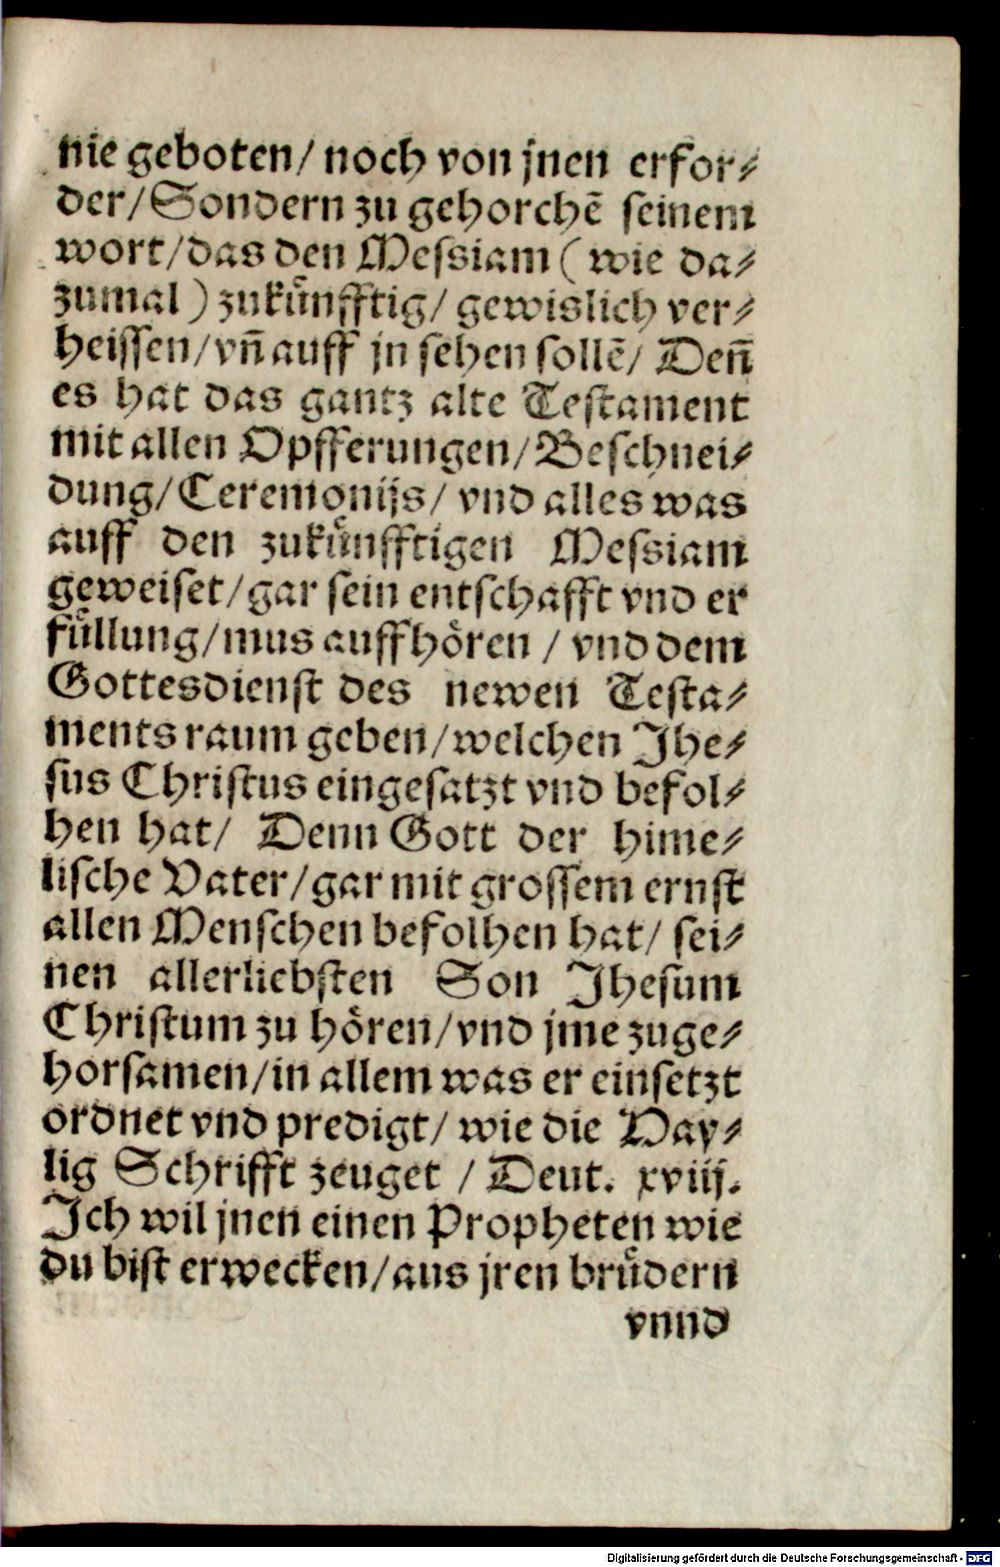 nie geboten/ noch von jnen erfor⸗
der/Sondern zu gehorchẽ seinem
wort/das den Messiam ( wie da⸗
zumal ) zukuͤnfftig/ gewislich ver⸗
heissen/vñ auff jn sehen sollẽ/ Deñ
es hat das gantz alte Testament
mit allen Opfferungen/Beschnei⸗
dung/Ceremonijs/ vnd alles was
auff den zukuͤnfftigen Messiam
geweiset/gar sein entschafft vnd er
fuͤllung/mus auffhoͤren / vnd dem
Gottesdienst des newen Testa⸗
ments raum geben/welchen Jhe⸗
sus Christus eingesatzt vnd befol⸗
hen hat/ Denn Gott der hime⸗
lische Vater/gar mit grossem ernst
allen Menschen befolhen hat/ sei⸗
nen allerliebsten Son Jhesum
Christum zu hoͤren/vnd jme zuge⸗
horsamen/in allem was er einsetzt
ordnet vnd predigt/ wie die Hay⸗
lig Schrifft zeuget / Deut. xviij.
Ich wil jnen einen Propheten wie
du bist erwecken/aus jren bruͤdern
vnnd
Digitalisierung gefördert durch die Deutsche Forschungsgemeinschaft - DFG